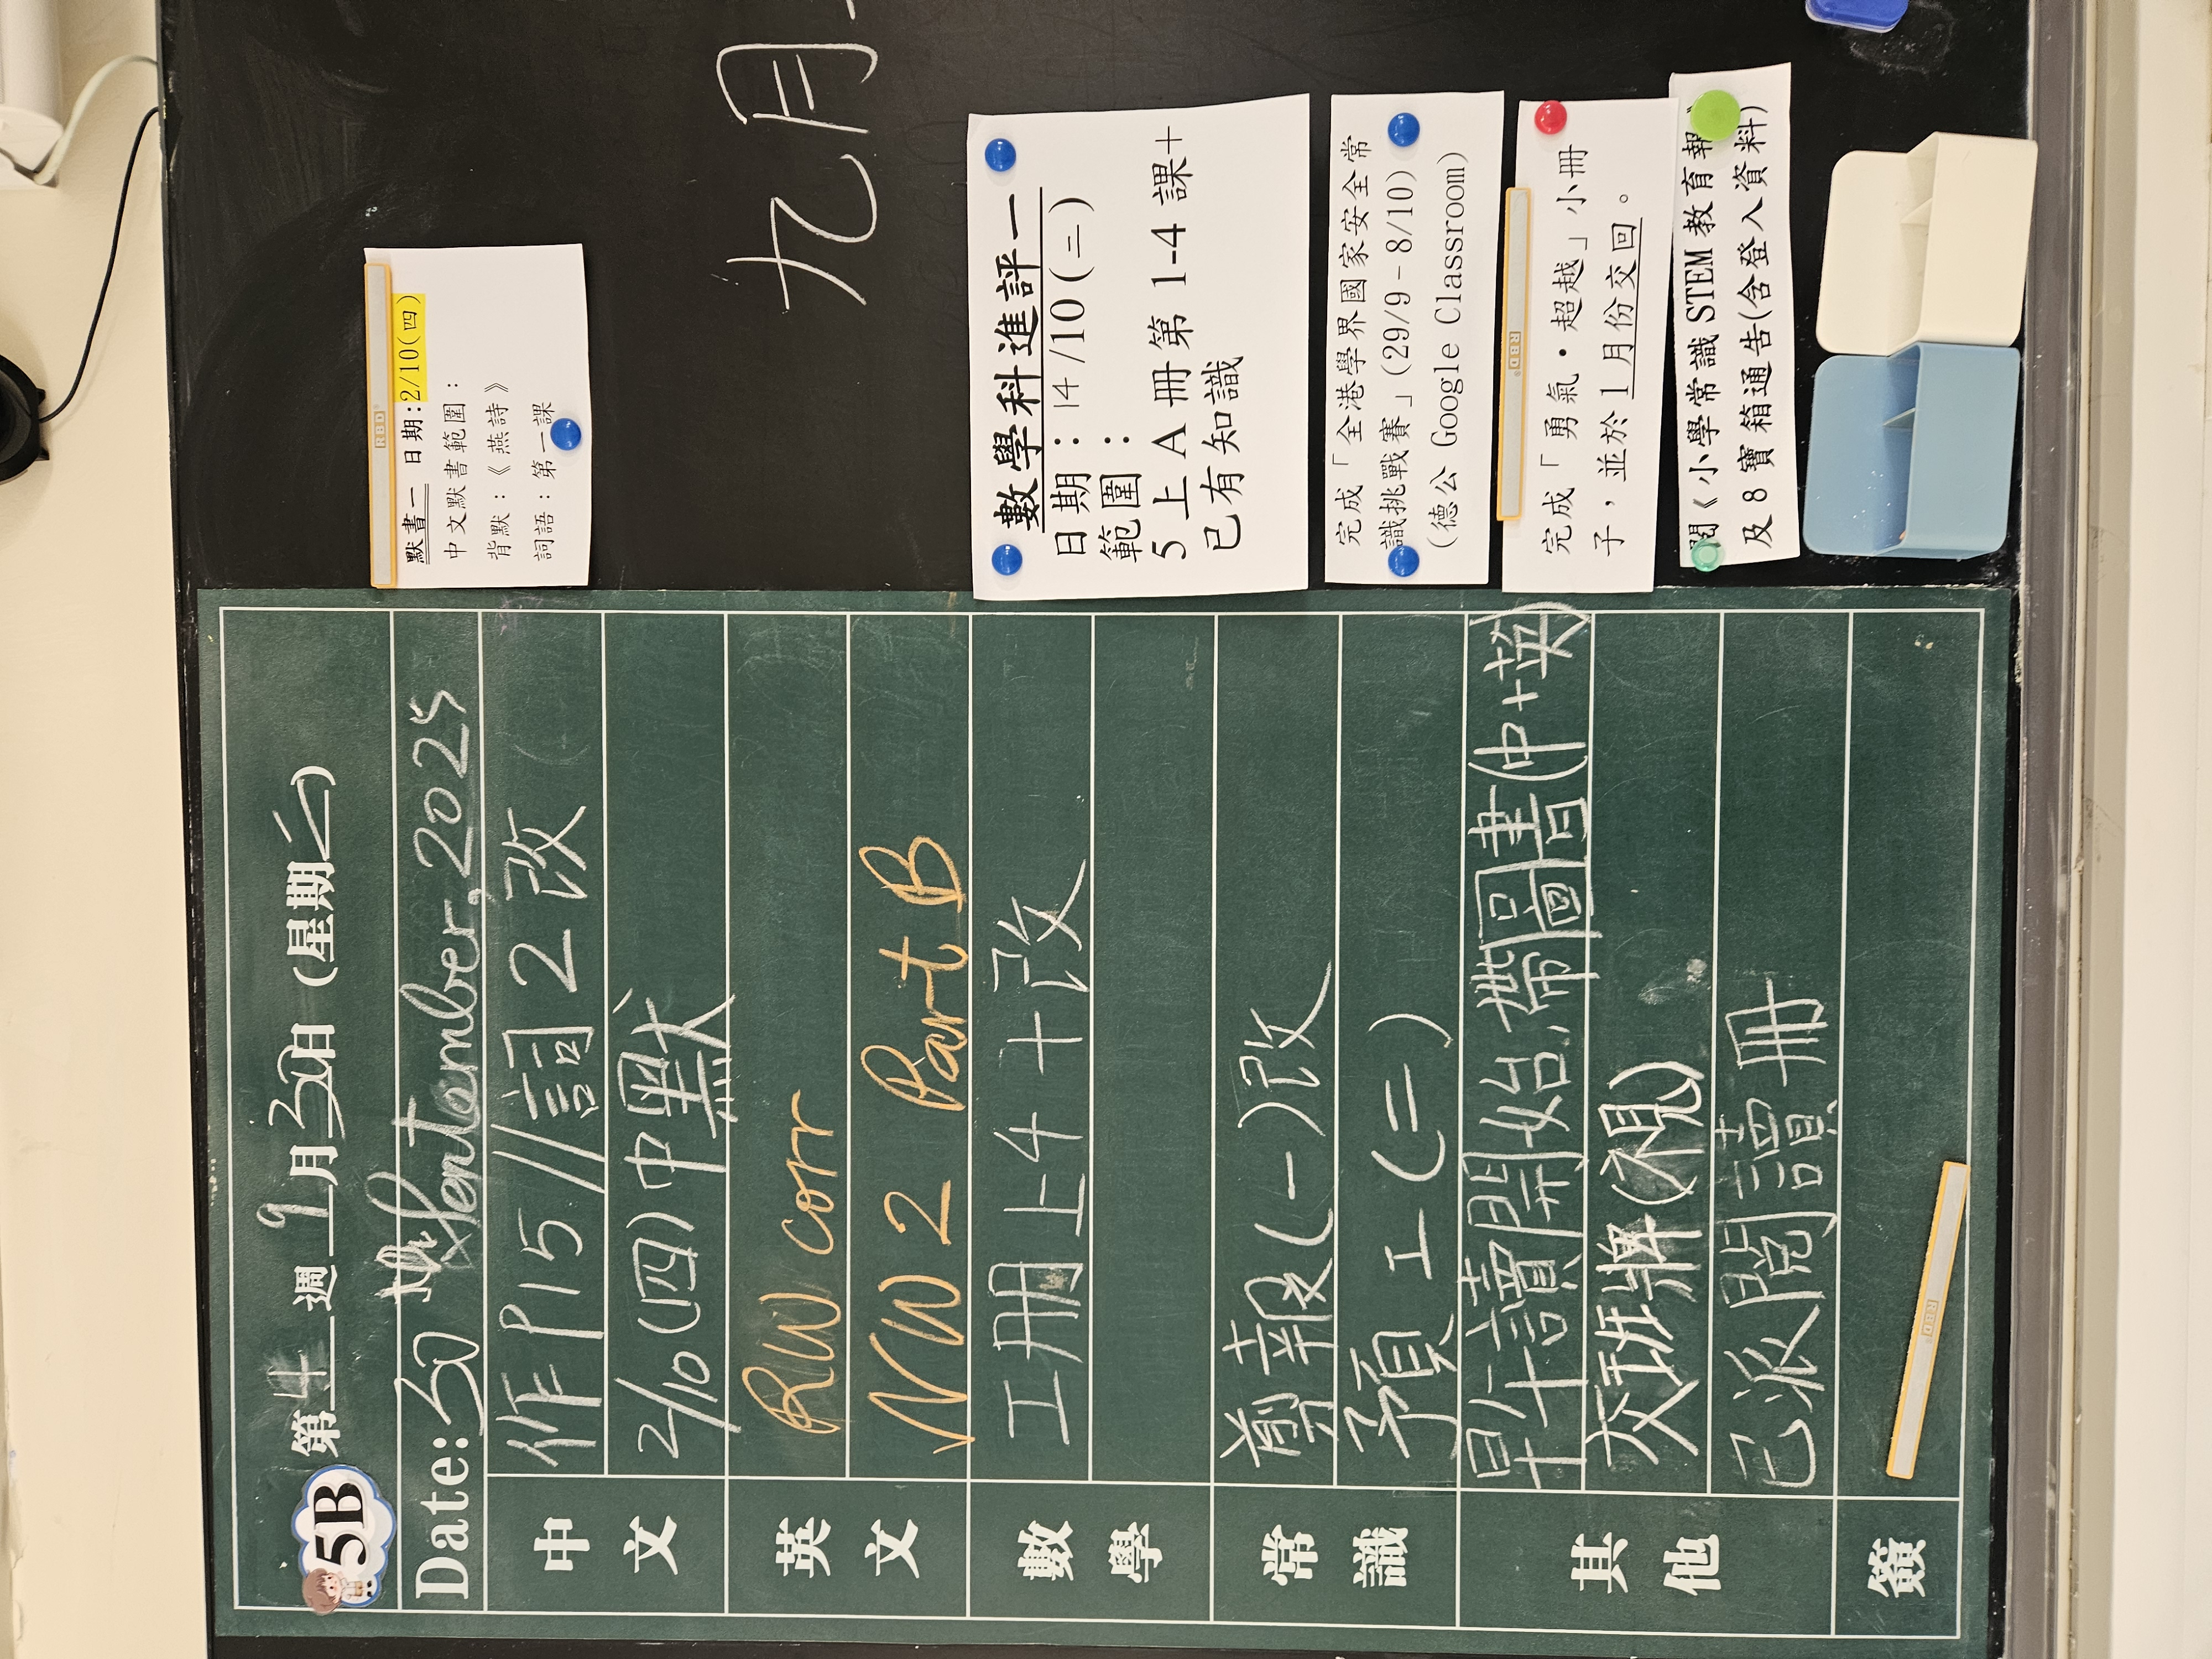 5B 第 4 週 9 月 30 日 (星期 二)
Date: 30 September, 2025
中文
作P15//詞2改
2/10(四)中默
英文
RW corr
NW 2 Part B
數學
工冊上4+改
常識
剪報(一)改
預工(二)
其他
早上讀開始,帶圖書(中+英)
交班牌(視)
已派閱讀冊
簽
RBD
RBD
默書一 日期:2/10(四)
中文默書範圍:
背默:《燕詩》
詞語:第一課
九月
數學科進評一
日期:14/10(二)
範圍:
5上A冊第1-4課+
已有知識
完成「全港學界國家安全常
識挑戰賽」(29/9-8/10)
(德公 Google Classroom)
RBD
完成「勇氣・超越」小冊
子,並於1月份交回。
閱《小學常識STEM教育報》
及8寶箱通告(含登入資料)